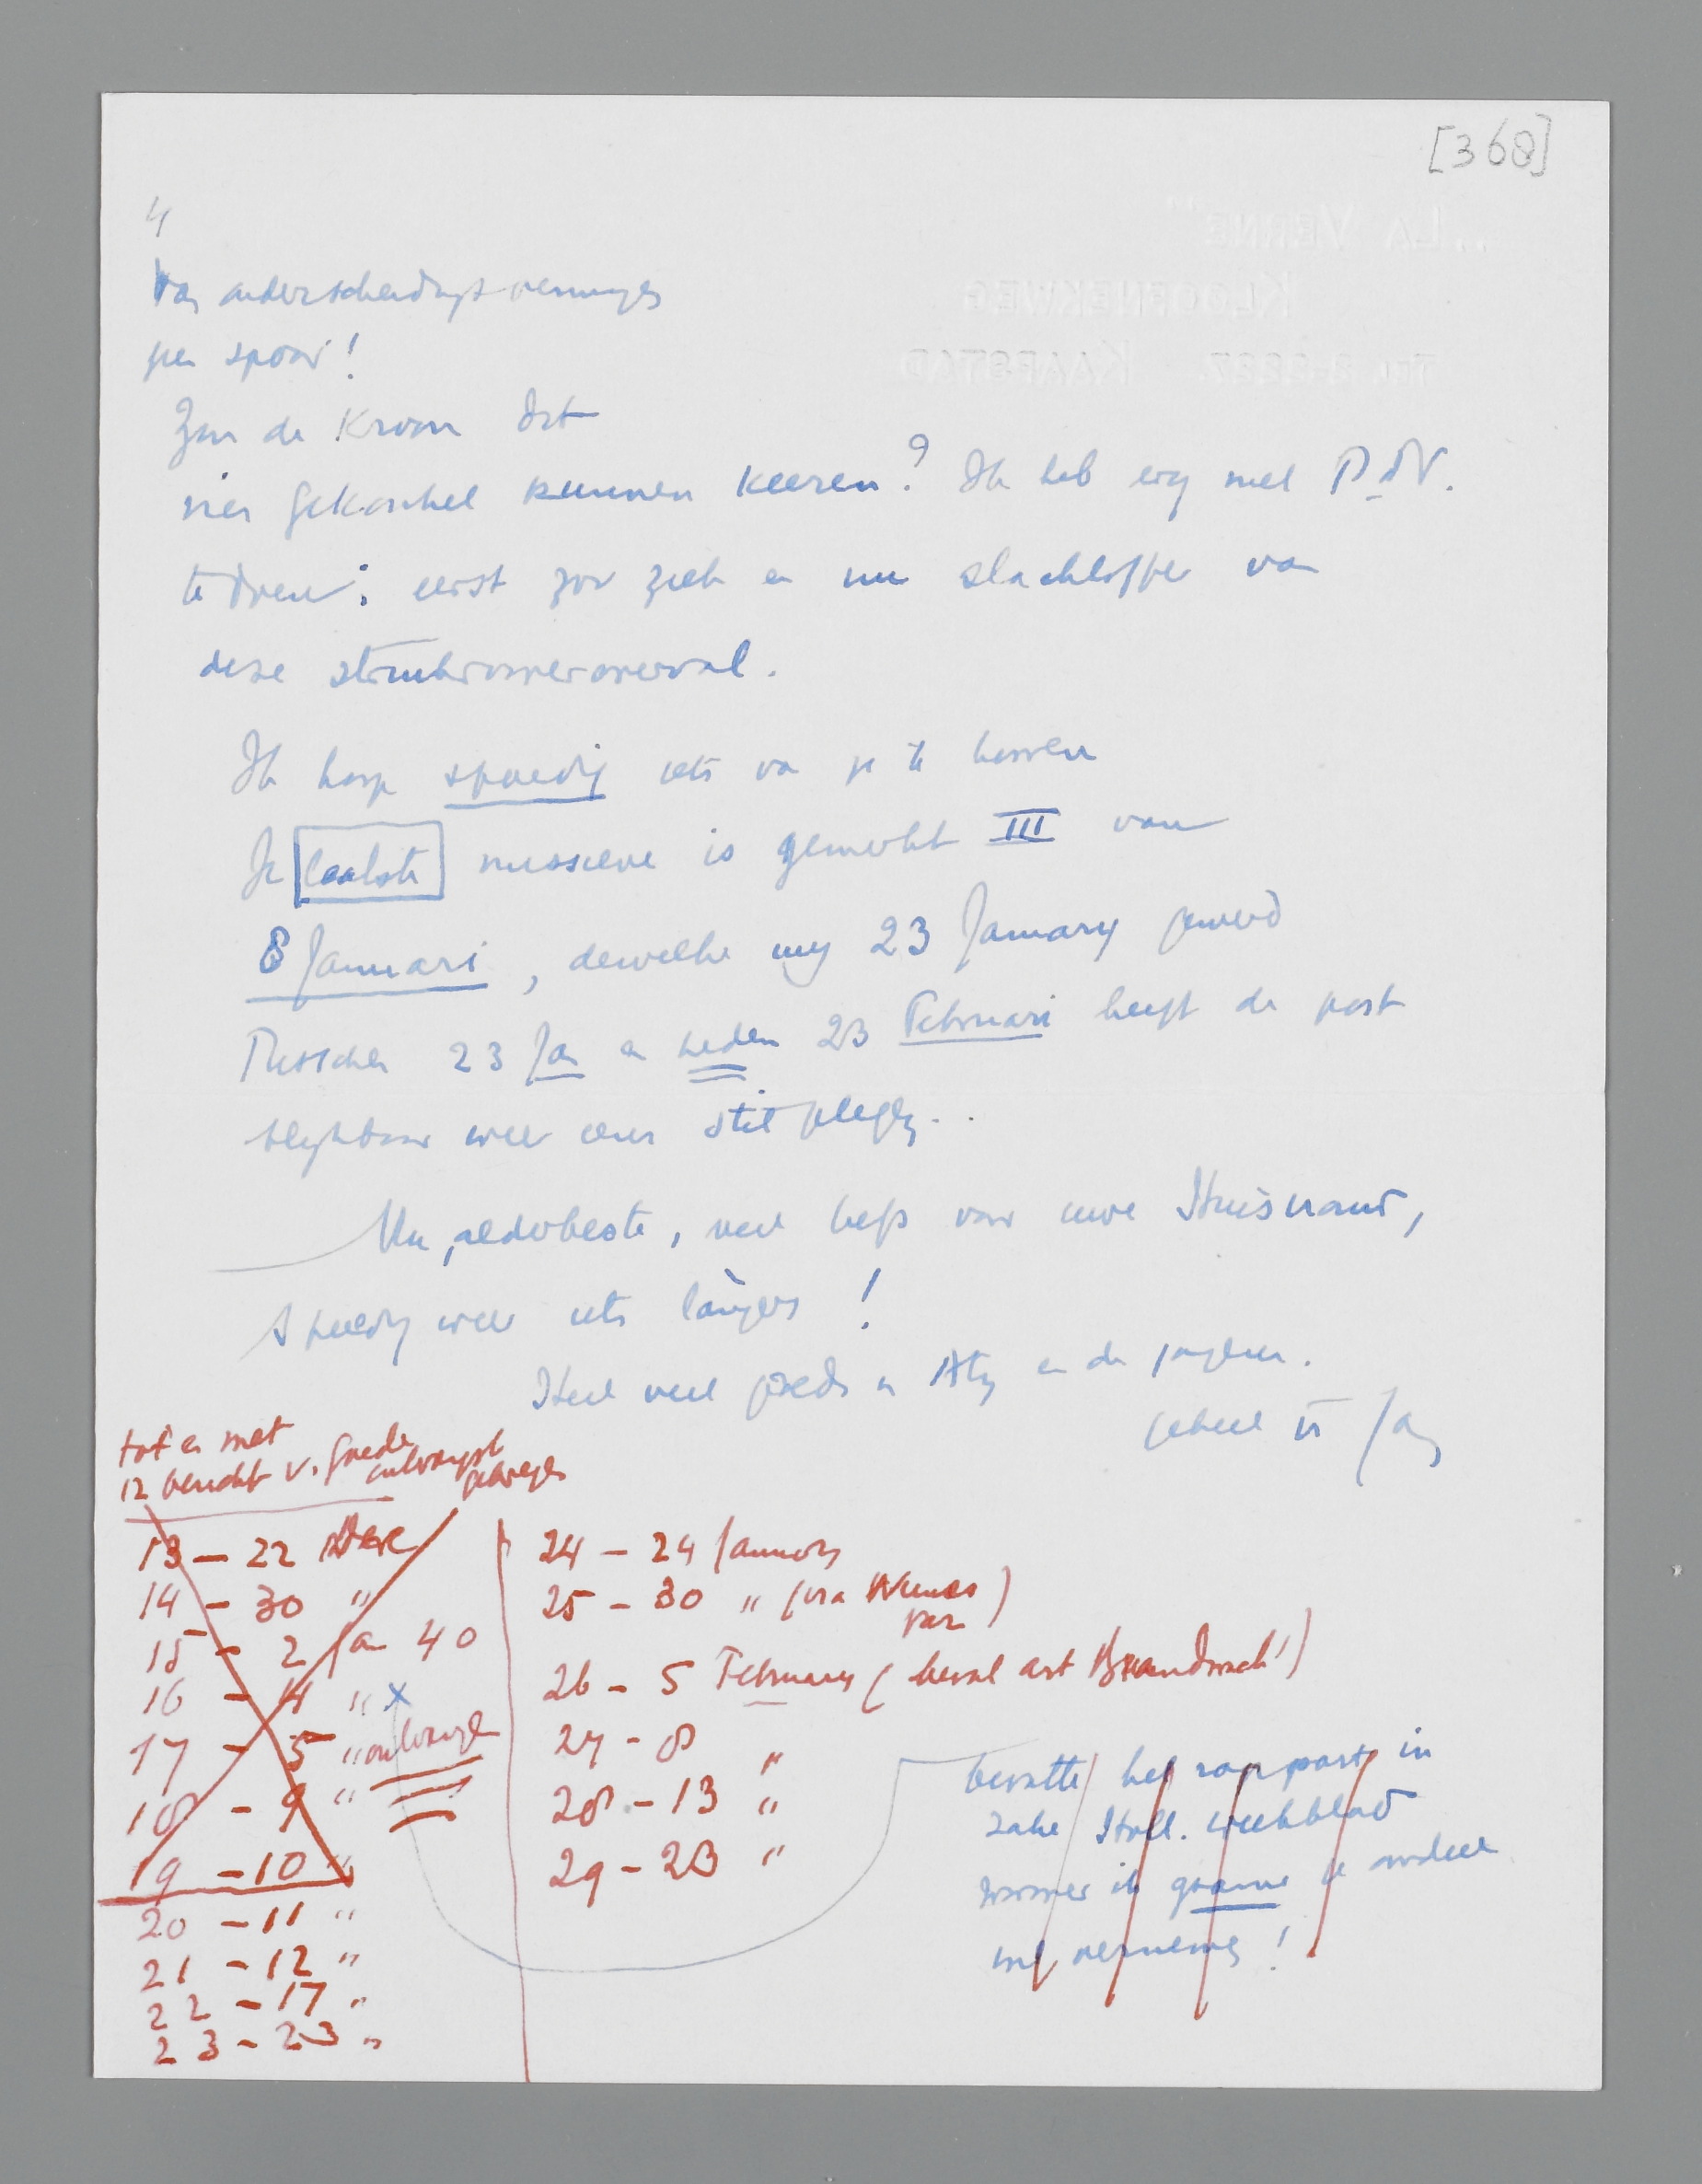 [368]
4
"LA VERNE"
KLOOFNEKWEG
TEL. 2-2227. KAAPSTAD
per spoor!
Zou de Kroon dat
gekonkel kunnen keeren? Ik heb erg met P.d.V.
te doen: eerst zoo ziek en nu slachtoffer van
deze struikrooveroverval.
Ik hoop spoedig iets van je te hooren
Je laatste missieve is gemerkt III van
8 Januari, dewelke mij 23 January gewerd
Tusschen 23 Jan en heden 23 Februari heeft de post
blijkbaar weer eens stil gelegen..
Nu, allerbeste, veel liefs voor uwe Huisvrouw,
spoedig weer iets langers!
Heel veel goeds en Aty en de jongleur.
geheel ut Jan
tot en met
12 bericht v. goede ontvangst gekregen
13 - 22 Dec
14 - 30 "
15 - 2 Jan 40
16 - 4 " x
17 - 5 " ontvangen
18 - 9 "
19 - 10 "
20 - 11 "
21 - 12 "
22 - 17 "
23 - 23 "
24 - 24 January
25 - 30 " (via
26 - 5 February (bevat art Brandwacht)
27 - 8 "
28 - 13 "
29 - 23 "
bevatte het rapport in
zake Holl. weekblad
waarover ik gaarne je oordeel
wil vernemen!